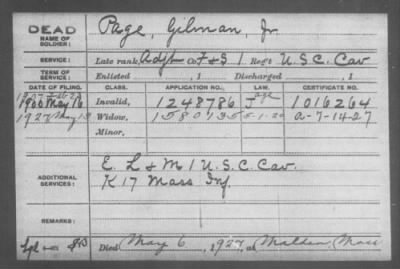 DEAD
NAME OF SOLDIER:
Page, Gilman, Jr
SERVICE: Late rank, Adjt Co. F & S 1 Reg't U.S.C. Cav
TERM OF SERVICE: Enlisted , 1 Discharged , 1
DATE OF FILING. CLASS. APPLICATION NO. LAW. CERTIFICATE NO.
1900 May 16 Invalid, 1248786 Age 1016264
1927 May 13 Widow, 1580135 5-1-20 a-7-14-27
Minor,
ADDITIONAL SERVICES:
E. L & M 1 U.S.C. Cav.
K 17 Mass Inf.
REMARKS:
Died May 6, 1927, at Malden, Mass